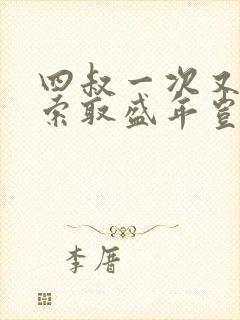 四叔一次又
索取盛年岂
李厝